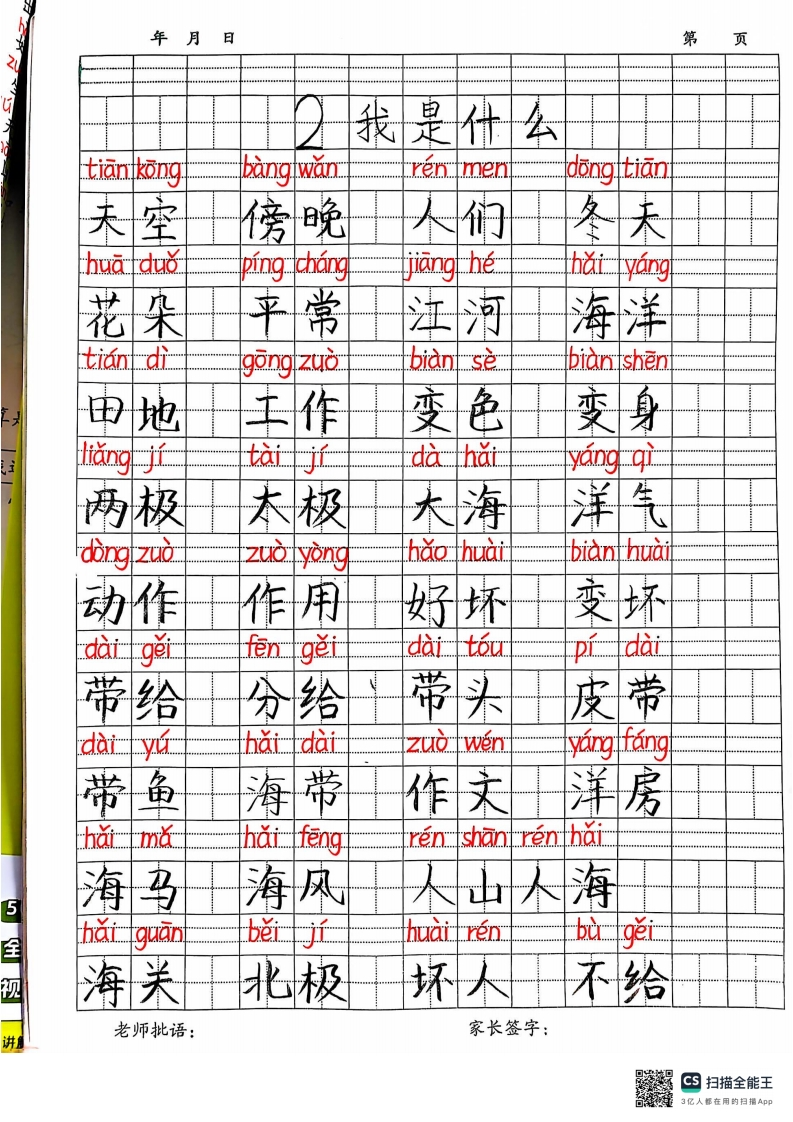 年 月 日 第 页
2 我是什么
tiān kōng bàng wǎn rén men dōng tiān
天空 傍晚 人们 冬天
huā duǒ píng cháng jiāng hé hǎi yáng
花朵 平常 江河 海洋
tián dì gōng zuò biàn sè biàn shēn
田地 工作 变色 变身
liǎng jí tài jí dà hǎi yáng qì
两极 太极 大海 洋气
dòng zuò zuò yòng hǎo huài biàn huài
动作 作用 好坏 变坏
dài gěi fēn gěi dài tóu pí dài
带给 分给 带头 皮带
dài yú hǎi dài zuò wén yáng fáng
带鱼 海带 作文 洋房
hǎi mǎ hǎi fēng rén shān rén hǎi
海马 海风 人山人海
hǎi guān běi jí huài rén bù gěi
海关 北极 坏人 不给
老师批语： 家长签字：
5
全
视
讲解
CS 扫描全能王
3亿人都在用的扫描App